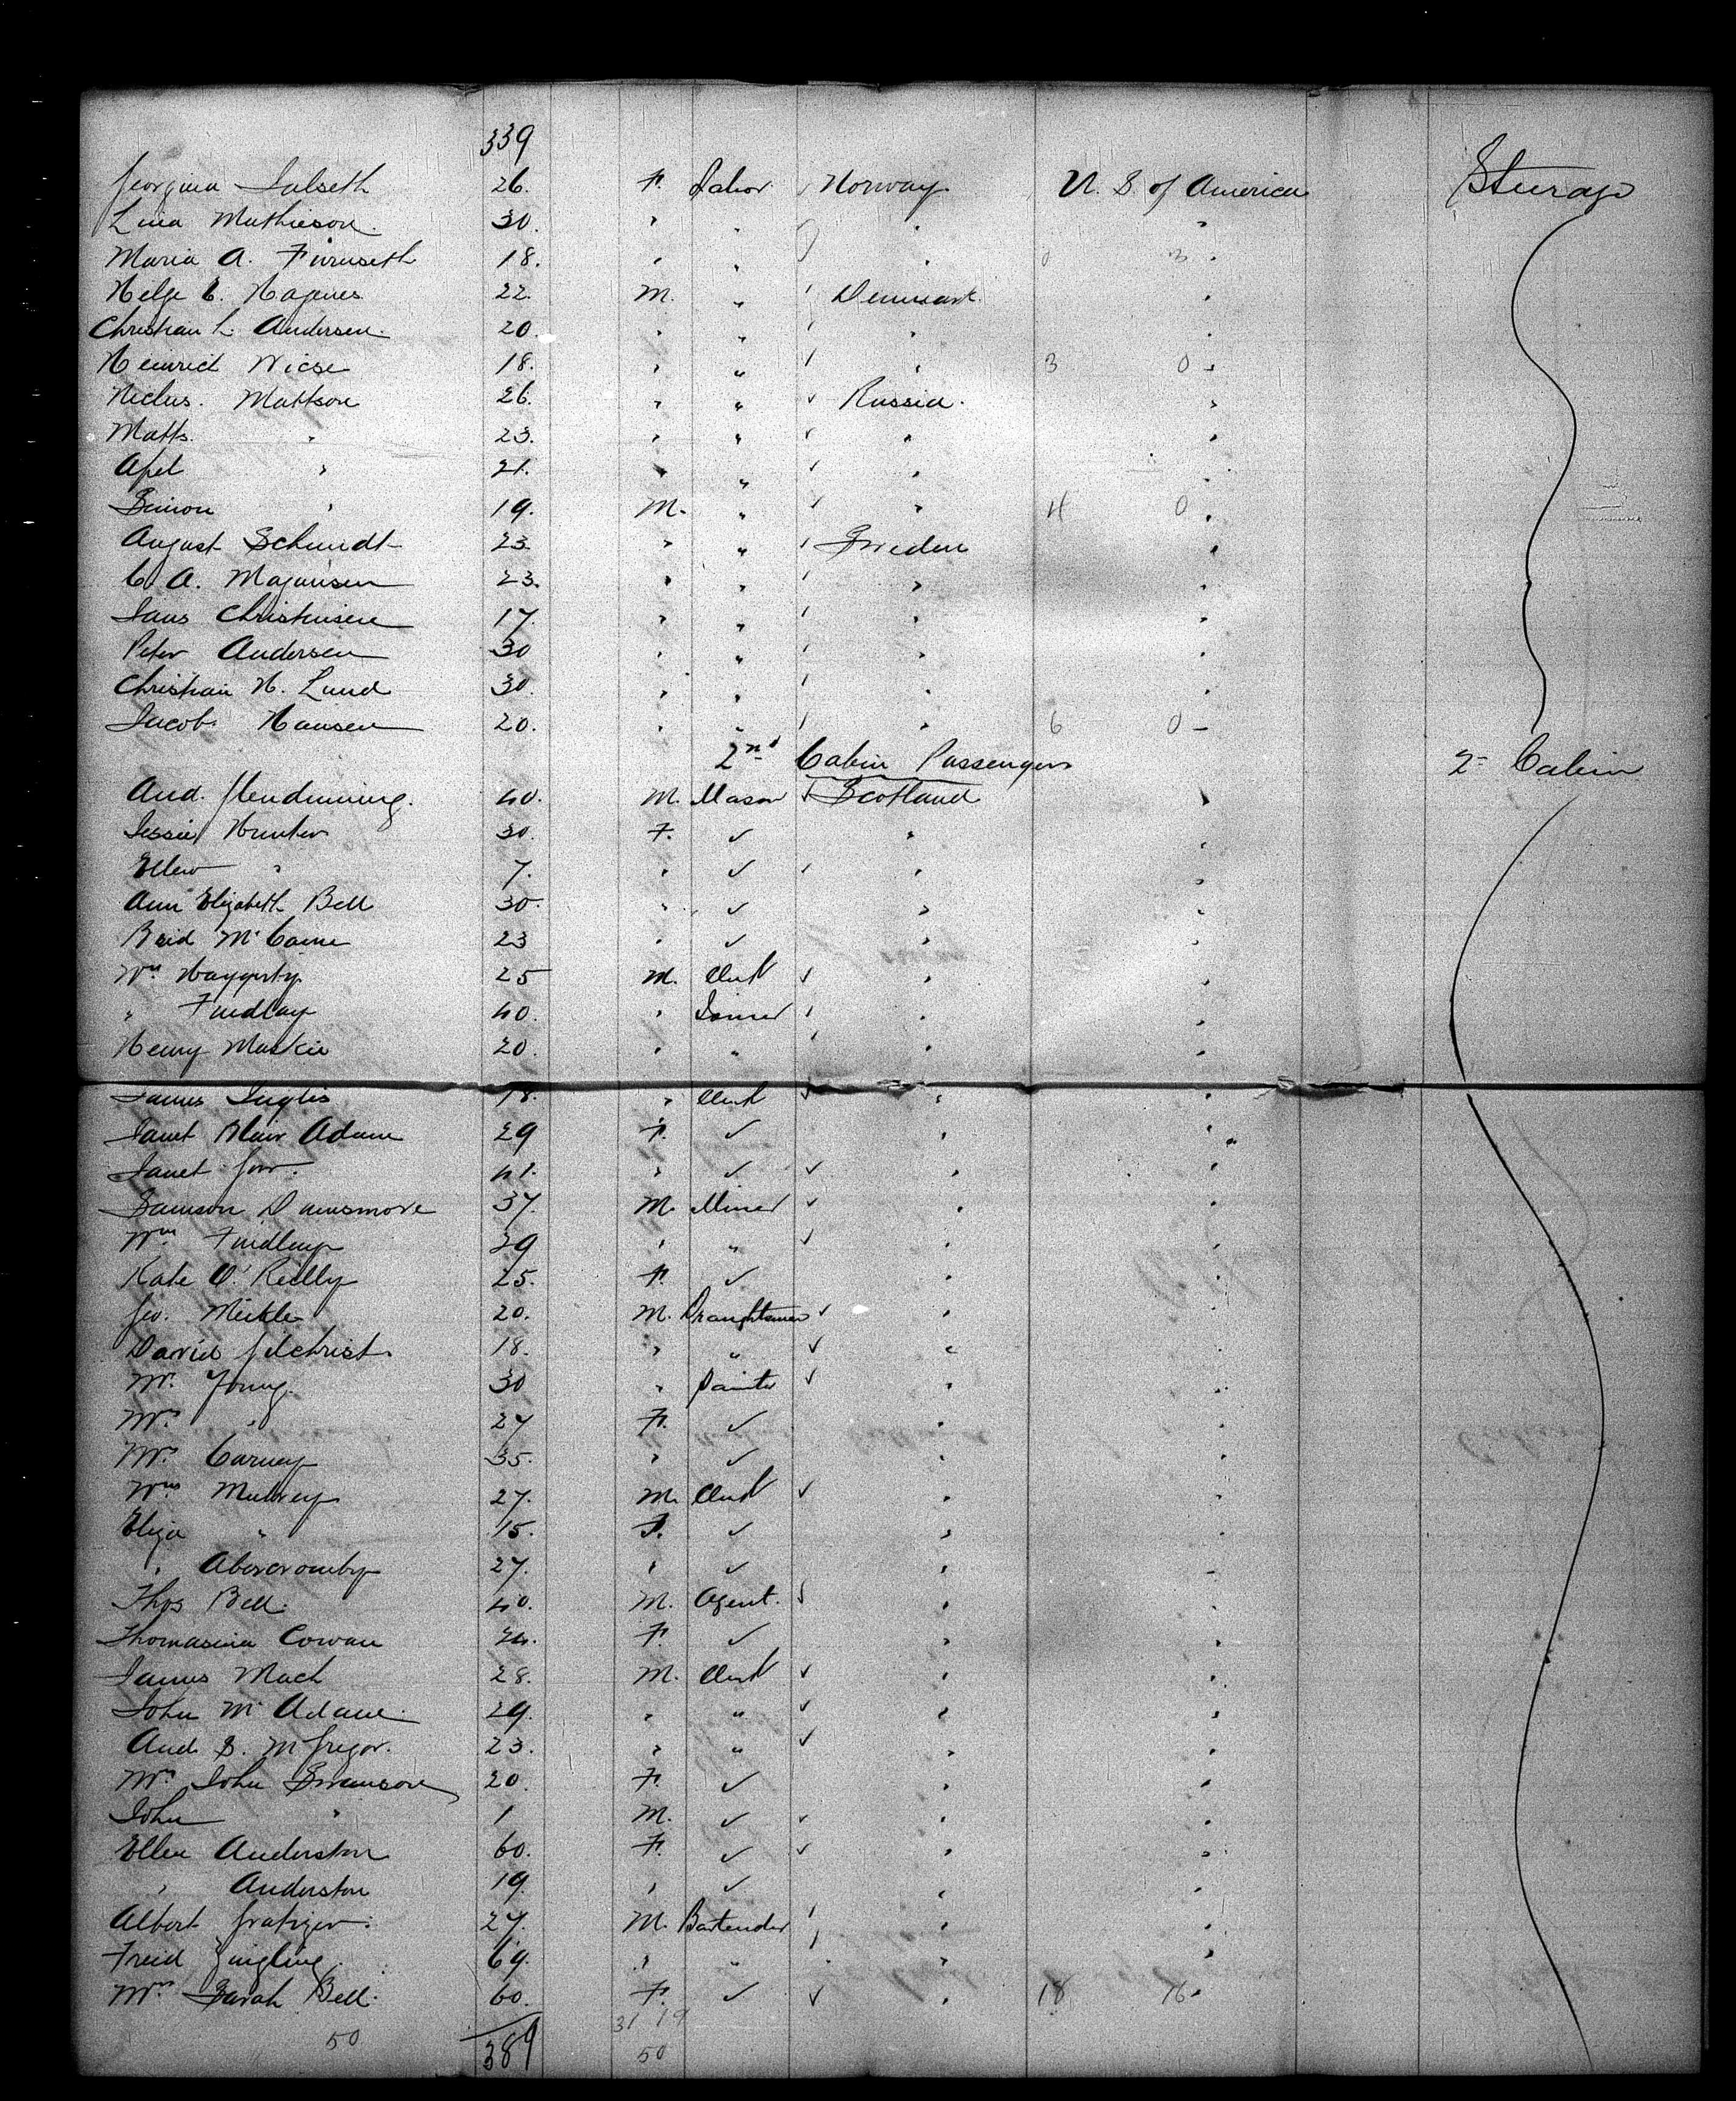 339
Georgina Salseth 26. F. Labor ✓ Norway U. S. of America Steerage
Lina Mathieson. 30. " " "
Maria A. Furuseth 18. " " " 0 3 "
Helge E. Hagenes 22. M. " Denmark "
Christian L. Andersen. 20. " " " "
Heinrich Wiese 18. " " " 3 0 "
Niclus. Mattson 26. " " ✓ Russia. "
Matts. " 23. " " ✓ " "
Apel " 21. " " ✓ " "
Simon " 19. M. " ✓ " 4 0 "
August Schmidt 23 " " Sweden "
C. A. Magnusen 23. " " " "
Hans Christensen 17. " " " "
Peter Andersen 30 " " " "
Christian H. Lund 30. " " " "
Jacob Hansen 20. " " " 6 0
2nd Cabin Passengers 2 Cabin
And. Glendinning. 40. M. Mason ✓ Scotland "
Jessie Hunter 30. F. ✓ " "
Ellen " 7. " ✓ " "
Ann Elizabeth Bell 30. " ✓ " "
23 " ✓ " "
Wm Haggerty 25 M. Clerk ✓ " "
" Findlay 40. " Joiner " "
Henry Mackie 20. " " " "
James Inglis 18. " Clerk ✓ " "
Janet Blair Adam 29 F. ✓ " "
Janet Gow. 41. " ✓ ✓ " "
Samson Dunsmore 37. M. Miner ✓ " "
Wm Findlay 29 " " ✓ " "
Kate O'Reilly 25. F. ✓ " "
Geo. Meikle 20. M. Draughtsman ✓ " "
David Gilchrist. 18. " " ✓ " "
Mr. Young. 30 " Painter ✓ " "
Mrs " 27 F. ✓ " "
Mrs Carney 35. " ✓ " "
Wm Mulvey 27. M. Clerk ✓ " "
Eliza " 15. F. ✓ " "
" Abercromby 27. " ✓ " "
Thos Bell. 40. M. Agent. " "
Thomasina Cowan 24. F. ✓ " "
James Mach 28. M. Clerk ✓ " "
John McAdam. 29. " " ✓ " "
And. S. McGregor. 23. " " ✓ " "
Mrs John Swanson 20. F. ✓ " "
John " 1 M. ✓ ✓ " "
Ellen Anderston 60. F. ✓ ✓ " "
" Anderston 19. " ✓ " "
Albert 27. M. Bartender " "
Freid Yuigling. 69. " " " "
Mrs Sarah Bell. 60. F. ✓ ✓ " 18 16 "
31 19
50 389 50